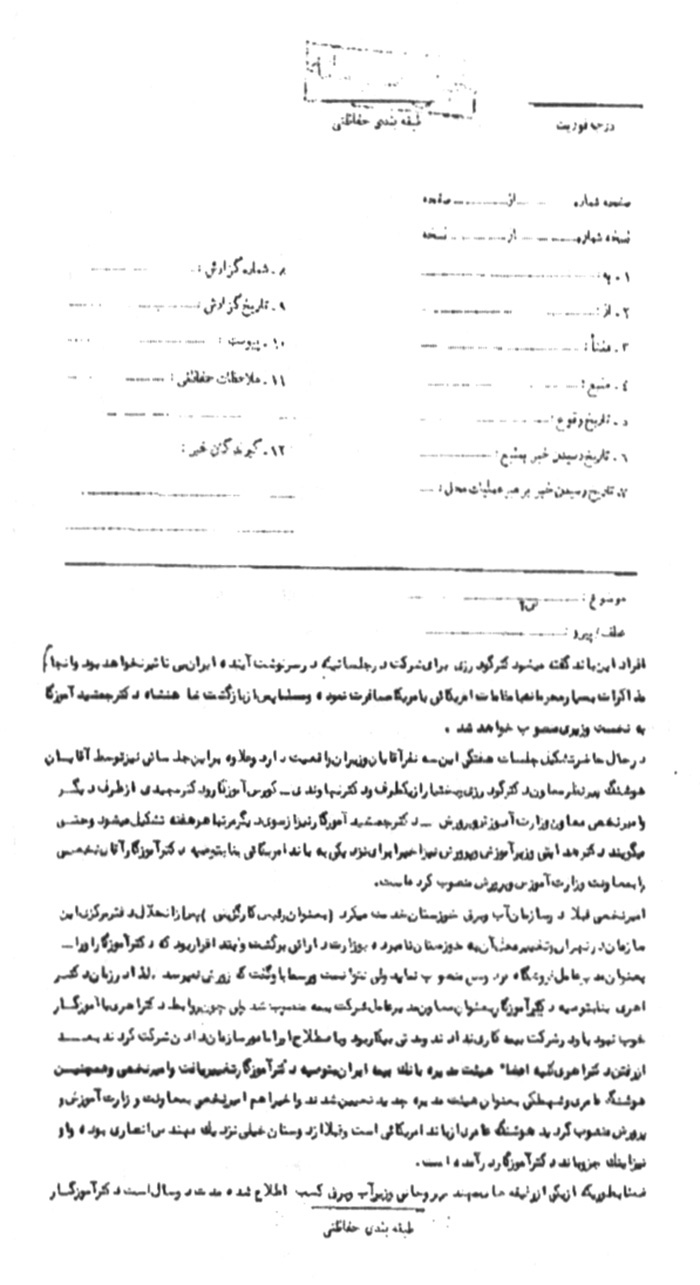 طبقه بندی حفاظتی
درجه فوریت
صفحه شماره از صفحه
نسخه شماره از نسخه
۱. به:
۲. از:
۳. منشأ:
۴. منبع:
۵. تاریخ وقوع:
۶. تاریخ رسیدن خبر بمنبع:
۷. تاریخ رسیدن خبر برهبر عملیات محل:
۸. شماره گزارش:
۹. تاریخ گزارش:
۱۰. پیوست:
۱۱. ملاحظات حفاظتی:
۱۲. گیرندگان خبر:
موضوع:
عطف/پیرو:
افراد این باند گفته میشود دکتر گودرزی برای شرکت در جلساتیکه در سرنوشت آینده ایران بی تاثیر نخواهد بود و انجام
مذاکرات بسیار محرمانه با مقامات امریکائی بامریکا مسافرت نموده و مسلما پس از بازگشت شاهنشاه دکتر جمشید آموزگار
به نخست وزیری منصوب خواهد شد.
در حال حاضر تشکیل جلسات هفتگی این سه نفر آقایان وزیران واقعیت دارد و علاوه براین جلساتی نیز توسط آقایان
هوشنگ پیرنظر معاون دکتر گودرزی بختیار از یکطرف و دکتر نهاوندی - کورس آموزگار و دکتر مجیدی از طرف دیگر
و امیر نخعی معاون وزارت آموزش و پرورش - دکتر جمشید آموزگار نیز از سوی دیگر مرتبا هر هفته تشکیل میشود و حتی
میگویند دکتر هدایتی وزیر آموزش و پرورش نیز اخیرا برای نزدیکی به باند امریکائی بنا بتوصیه دکتر آموزگار آقای نخعی
را بمعاونت وزارت آموزش و پرورش منصوب کرده است.
امیر نخعی قبلا در سازمان آب و برق خوزستان خدمت میکرد (بعنوان رئیس کارگزینی) پس از انحلال دفتر مرکزی این
سازمان در تهران و تغییر محل آن به خوزستان نامبرده بوزارت دارائی برگشت و بعد اقرار بود که دکتر آموزگار او را -
بعنوان مدیر عامل فروشگاه فردوسی منصوب نماید ولی نتوانست و رسما باو گفت که زورش نمیرسد. لذا در زمان دکتر
اهری بنا بتوصیه دکتر آموزگار بعنوان معاون مدیر عامل شرکت بیمه منصوب شد ولی چون روابط دکتر اهری با آموزگار
خوب نبود باو در شرکت بیمه کاری ندادند و مدتی بیکار بود و باصطلاح او را مامور سازمان دادن شرکت کردند بعد
از رفتن دکتر اهری کلیه اعضاء هیئت مدیره بانک بیمه ایران بتوصیه دکتر آموزگار تغییر یافت و امیر نخعی و همچنین
هوشنگ عامری و شهطکی بعنوان هیئت مدیره جدید تعیین شدند و اخیرا هم امیر نخعی بمعاونت وزارت آموزش و
پرورش منصوب گردید هوشنگ عامری از باند امریکائی است و قبلا از دوستان خیلی نزدیک مهندس انصاری بوده و او
نیز اینک جزو باند دکتر آموزگار درآمده است.
ضمنا بطوریکه از یکی از رفیقه های مهندس روحانی وزیر آب و برق کسب اطلاع شده مدت دو سال است دکتر آموزگار
طبقه بندی حفاظتی